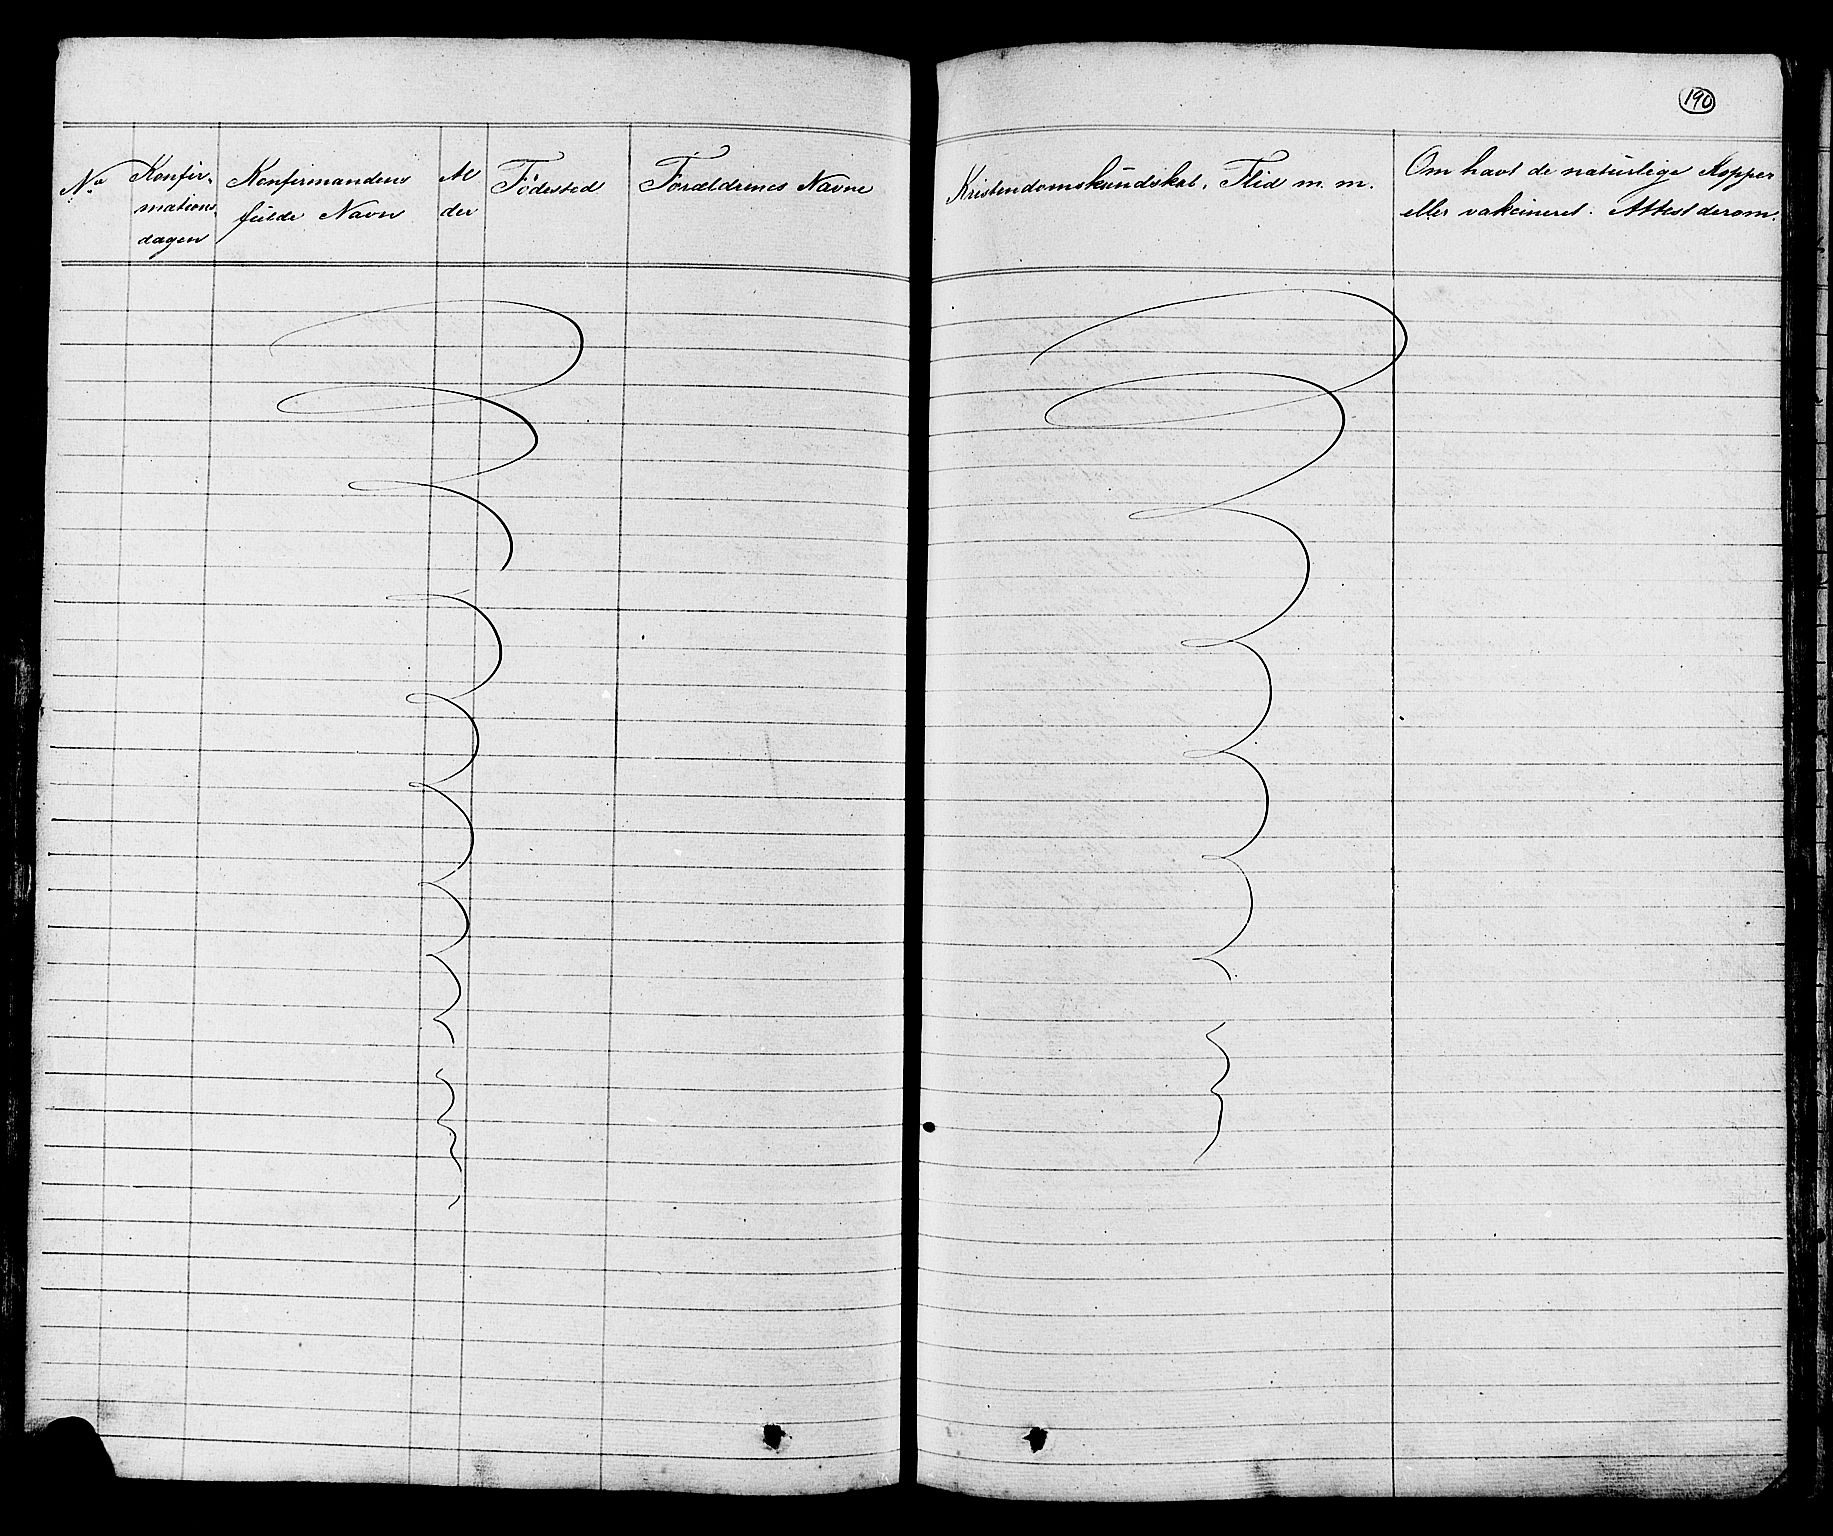 190
No
Konfir-
mations-
dagen
Konfirmandens
fulde Navn
Al
der
Födested
Forældrenes Navne
Kristendomskundskab, Flid m. m.
Om havt de naturlige Kopper
eller vakcineret. Attest derom.